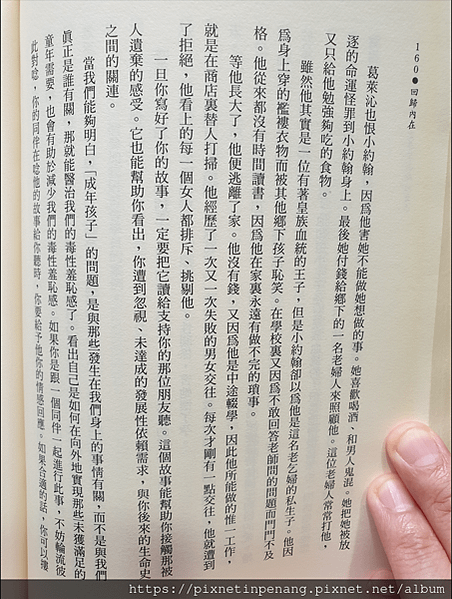 160●回歸內在
葛萊沁也恨小約翰，因爲他害她不能做她想做的事。她喜歡喝酒、和男人鬼混。她把她被放
逐的命運怪罪到小約翰身上。最後她付錢給鄉下的一名老婦人來照顧他。這位老婦人常常打他，
又只給他勉強夠吃的食物。
雖然他其實是一位有著皇族血統的王子，但是小約翰卻以爲他是這名老乞婦的私生子。他因
爲身上穿的襤褸衣物而被其他鄉下孩子恥笑。在學校裏又因爲不敢回答老師問的問題而門門不及
格。他從來都沒有時間讀書，因爲他在家裏永遠有做不完的瑣事。
等他長大了，他便逃離了家。他沒有錢，又因爲他是中途輟學，因此他所能做的惟一工作，
就是在商店裏替人打掃。他經歷了一次又一次失敗的男女交往。每次才剛有一點交往，他就遭到
了拒絕，他看上的每一個女人都排斥、挑剔他。
一旦你寫好了你的故事，一定要把它讀給支持你的那位朋友聽。這個故事能幫助你接觸那被
人遺棄的感受。它也能幫助你看出，你遭到忽視、未達成的發展性依賴需求，與你後來的生命史
之間的關連。
當我們能夠明白，「成年孩子」的問題，是與那些發生在我們身上的事情有關，而不是與我們
眞正是誰有關，那就能醫治我們的毒性羞恥感了。看出自己是如何在向外地實現那些未獲滿足的
童年需要，也會有助於減少我們的毒性羞恥感。如果你是跟一個同伴一起進行此事，不妨輪流彼
此對唸，你的同伴在唸他的故事給你聽時，你要給予他你的情感回應。如果合適的話，你可以摟
https://pixnetinpenang.pixnet.net/album